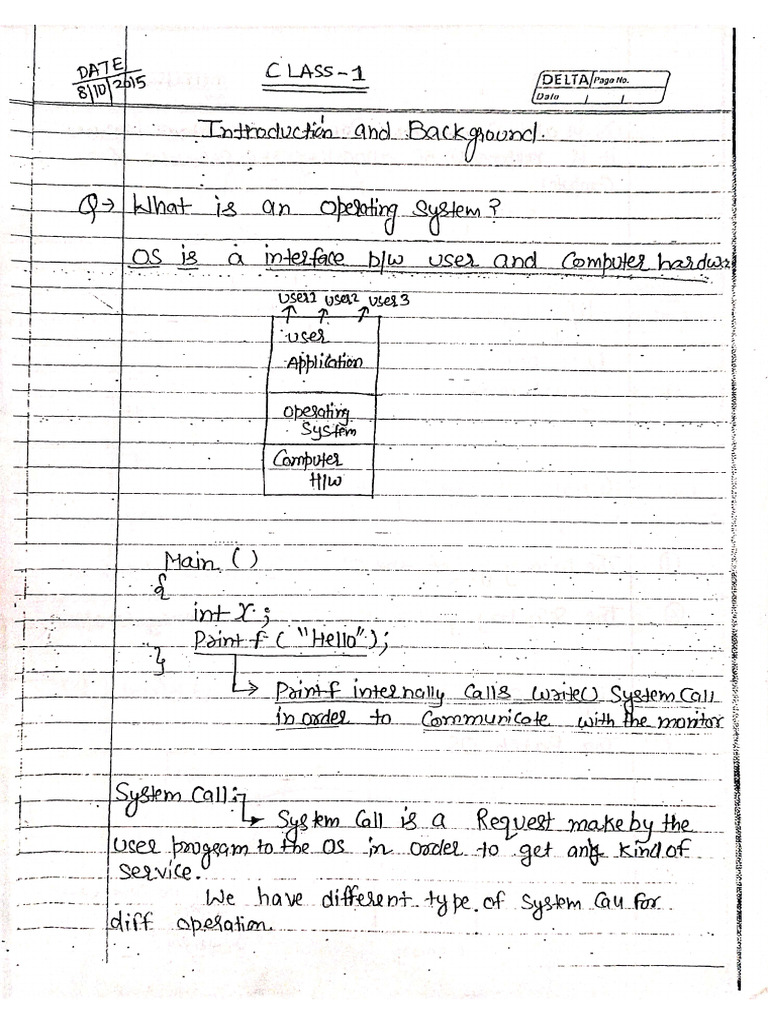 DATE
8/10/2015
CLASS-1
DELTA Page No.
Date / /
Introduction and Background.
Q→ What is an operating system?
OS is a interface b/w user and Computer hardw
user1 user2 user3
user
Application
operating
system
Computer
H/W
Main ()
{
int x;
Printf ("Hello");
}
Printf internally calls write() System Call
in order to Communicate with the monitor
System Call:
System Call is a Request make by the
user program to the OS in order to get any kind of
service.
We have different type of system call for
diff operation.